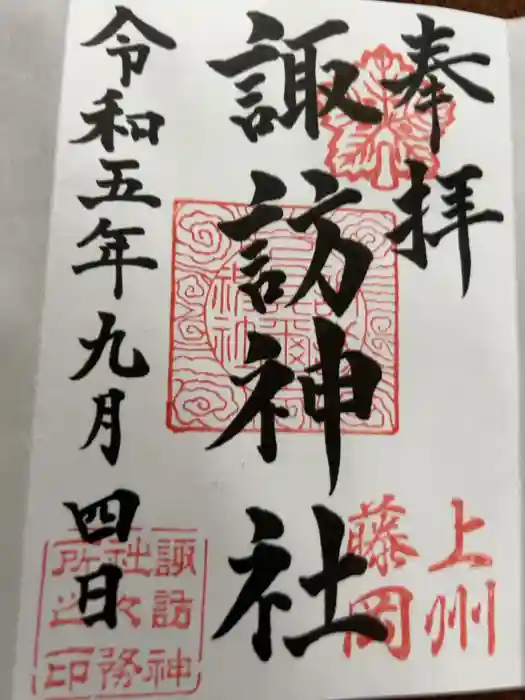 奉拝
上州
藤岡
諏訪神社
令和五年九月四日
諏訪神
社々務
所之印